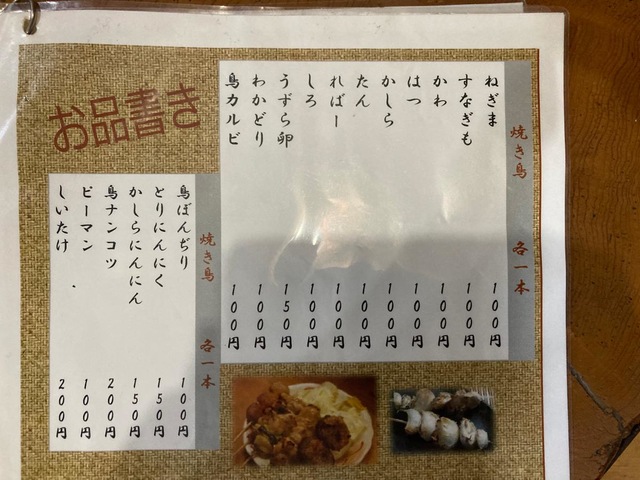 お品書き
焼き鳥 各一本
ねぎま 100円
すなぎも 100円
かわ 100円
はつ 100円
かしら 100円
たん 100円
ればー 100円
しろ 100円
うずら卵 150円
わかどり 100円
鳥カルビ 100円
焼き鳥 各一本
鳥ぼんぢり 100円
とりにんにく 150円
かしらにんにん 150円
鳥ナンコツ 200円
ピーマン 100円
しいたけ 200円